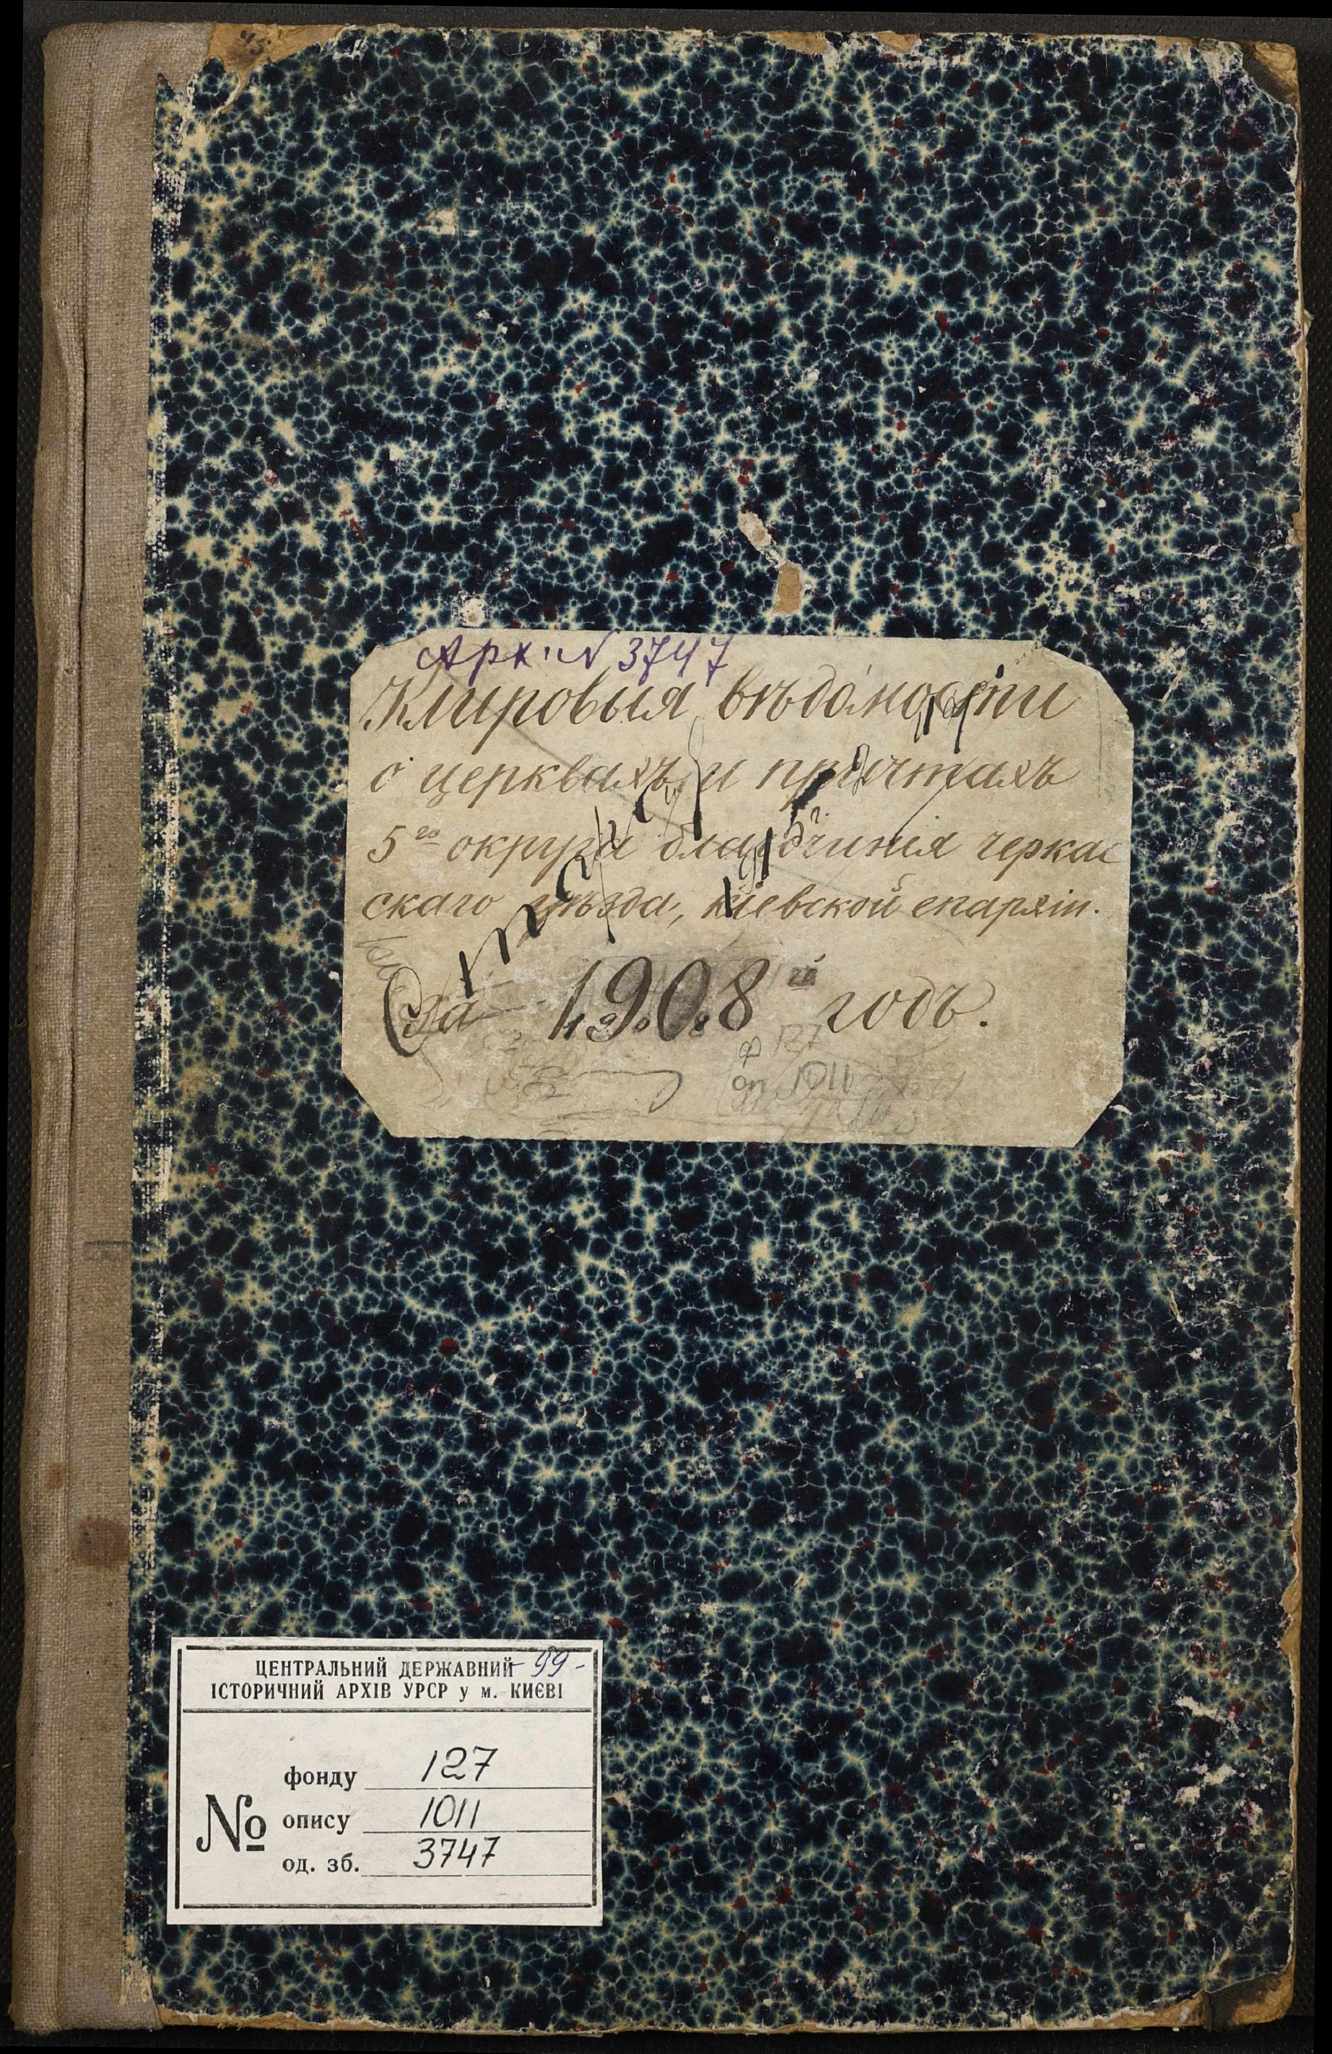 Арх. № 3747
Клировыя вѣдомости
о церквахъ и причтахъ
5го округа благочинія черкас
скаго уѣзда, кіевской епархіи.
За 1908й годъ.
ф 127
оп 1011
ЦЕНТРАЛЬНИЙ ДЕРЖАВНИЙ - 99 -
ІСТОРИЧНИЙ АРХІВ УРСР у м. КИЄВІ
фонду 127
№ опису 1011
од. зб. 3747